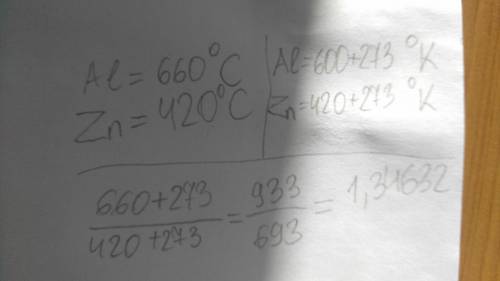 Al = 660°C
Zn = 420°C
Al = 600 + 273 °K
Zn = 420 + 273 °K
660 + 273 / 420 + 273 = 933 / 693 = 1,34632